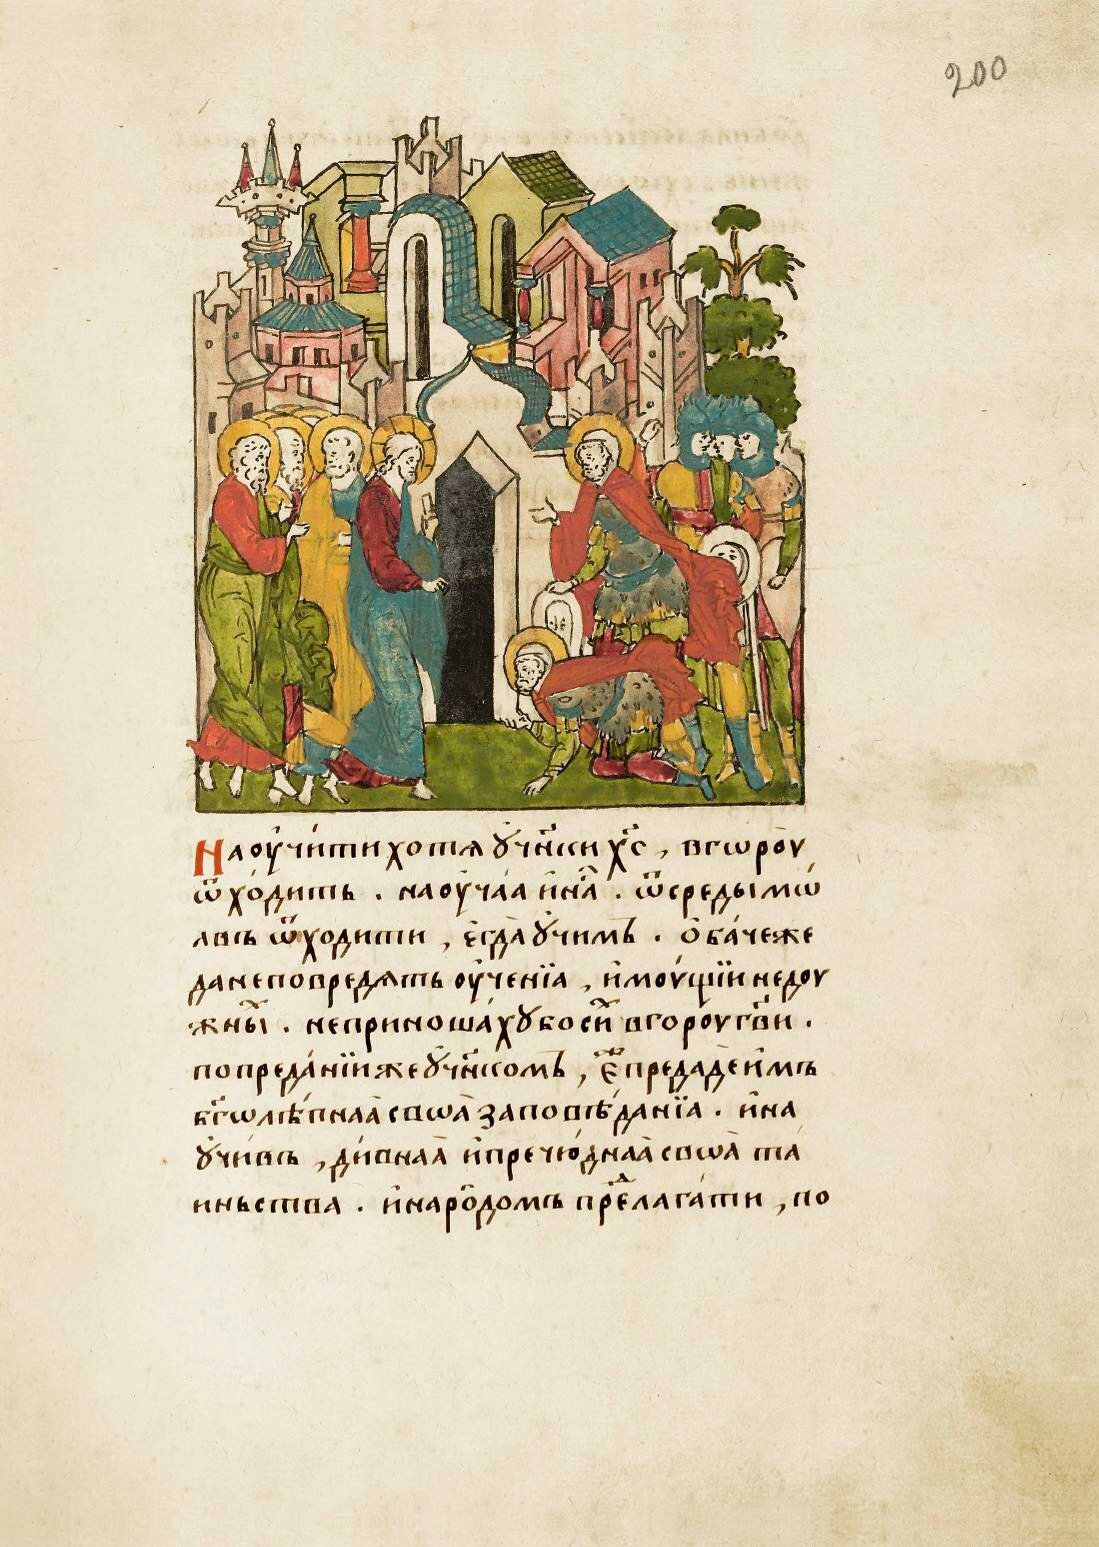 200
Наоу҆чи́ти хотѧ ᲂу҆ чн҃ки хс҃ , вгѡроу
ѿхо́дить . наоу҆ча́а и҆нл҃ . ѿсреды мѡ
лвъ ѿходити , є҆гда ᲂу҆чимъ . Ѻ҆ба́чеже
данеповредѧть оу҆чені́а , и҆моу́щїи недоу
жны́ⷯ . неприноша́хꙋбосиⷯ вгороу гв҃и .
попреда́нїи же ᲂу҆чн҃комъ , є҆ⷤ предаде и҆мъ
бг҃ѡлѣпнаа҆ своа҆ заповѣ́данїа . и҆на
ᲂу҆чи́въ , ди́внаа҆ и҆пречю́днаа своа҆ та́
иньства . и҆наро́домъ преⷣлага́ти , по